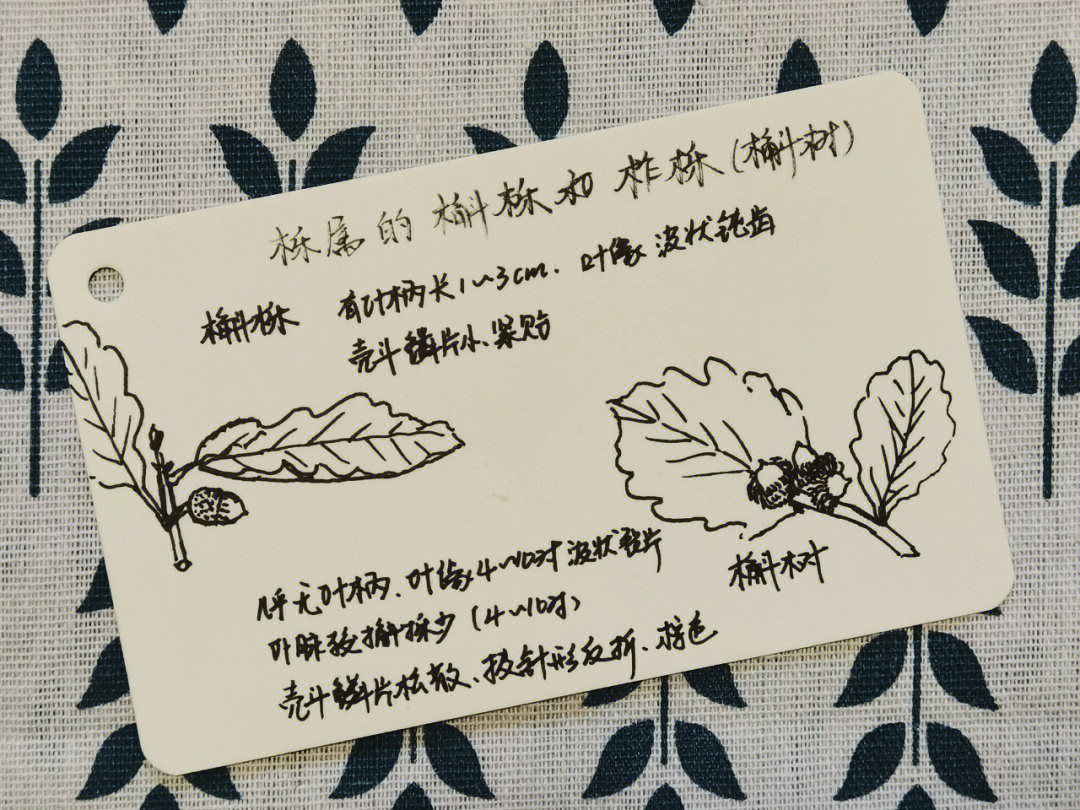 栎属的 槲栎和 柞栎(槲树)
槲栎 有叶柄长1~3cm. 叶缘 波状钝齿
壳斗鳞片小、紧贴
槲树
几乎无叶柄、叶缘4~10对 波状裂片
叶脉较槲栎少(4~10对)
壳斗鳞片松散、披针形反折、棕色